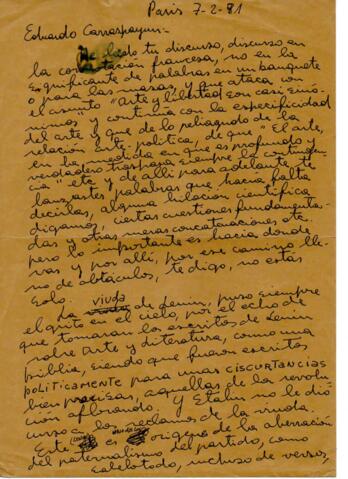 Paris 7-2-81
Eduardo Carrasquyun:-
He leído tu discurso, discurso en
la connotación francesa, no en la
significante de palabras en un banquete
o para las masas, y que ataca con
el asunto "Arte y libertad son casi sinó-
nimos" y continúa con la especificidad
del arte y que de lo peliagudo de la
relación arte-política, de que "El arte,
en la medida en que es profundo y
verdadero trabaja siempre la
cia" etc y de allí para adelante te
lanzastes palabras que hacía falta
decirlas, alguna hilación científica
digamos, ciertas cuestiones fundamenta-
das y otras meras concatenaciones etc.
pero lo importante es hacia donde
vas y por allí, por ese camino lle-
no de obstáculos, te digo, no estás
solo.
La viuda de Lenin, puso siempre
el grito en el cielo, por el echo de
que tomaran los escritos de Lenin
sobre Arte y Literatura, como una
biblia, siendo que fueron escritos
políticamente para unas ciscurtancias
bien precisas, aquellas de la revolu
ción aflorando. Y Stalin no le dió
curso a los reclamos de la viuda.
Este es origen de la aberración
del paternalismo del partido, como
sabelotodo, incluso de versos,